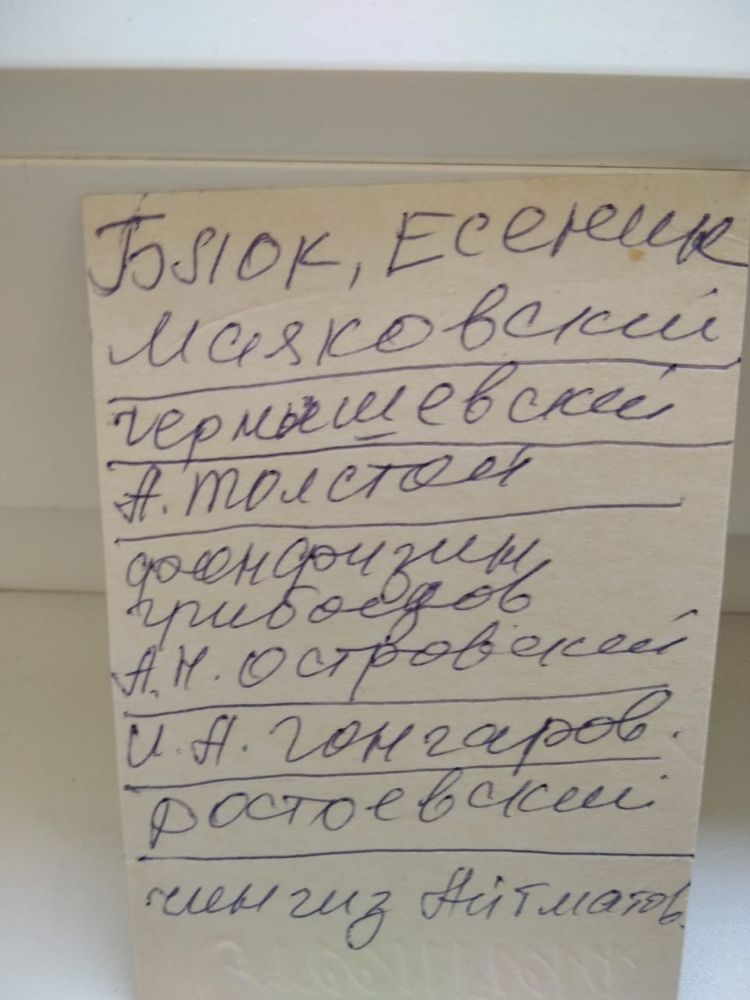 Блок, Есенин
Маяковский
чернышевский
А. Толстой
фонфизин
грибоедов
А.Н. Островский
И.А. Гончаров.
Достоевский
чингиз Айтматов.